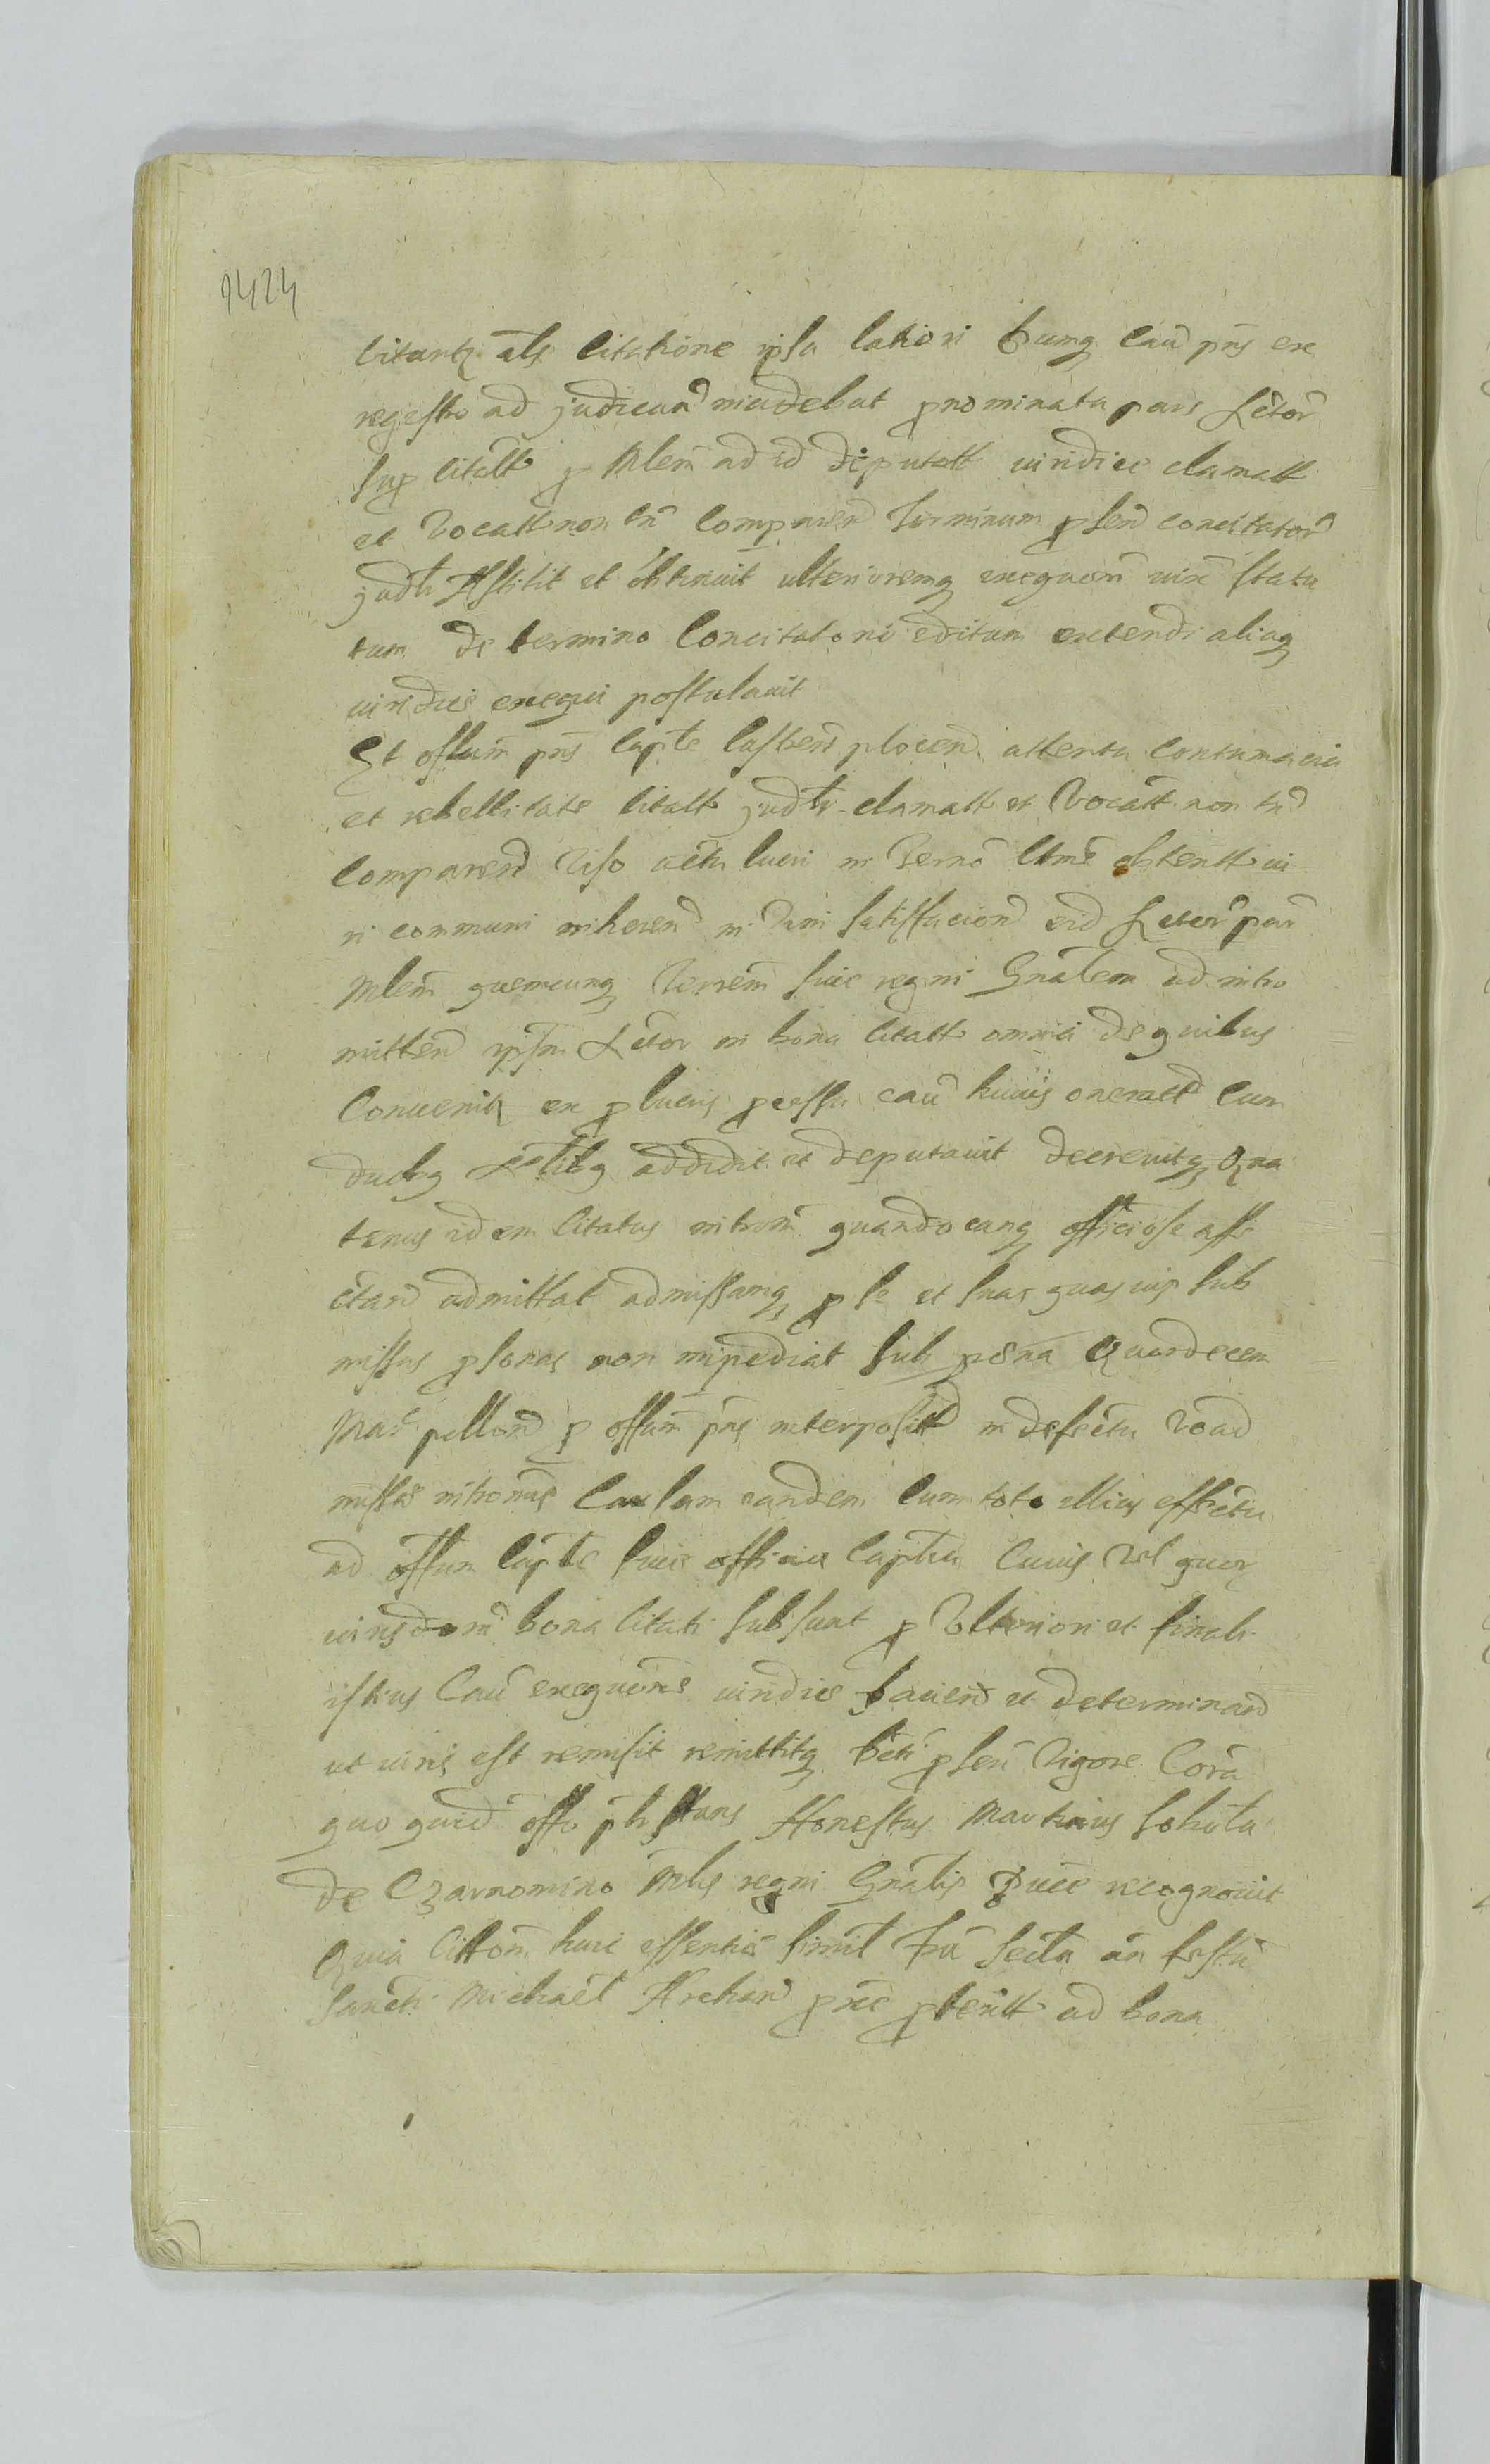 1424
citantq als citatione ipsa latiori Cumq cau pns ex
regestro ad judicand incidebat pnominata pars Actor
sup citatt p Mlem ad id deputatt iuridice clamatt
et vocatt non tn comparen terminum psen concitator
judlr Astitit et obtinuit ulterioremq exequcom iuxe statu
tum de termino concitatoni editum extendi aliaq
iuridice exequi postulavit
Et offum pns capte castren plocen attenta contumacia
et rebellitate citatt judlr clamatt et vocatt non tn
comparen viso actu lucri in termo ltme obtentt iu
ri communi inheren in vim satisfaction eid Actor par
Mlem quemcunq terrem sive regni Gnalem ad intro
mitten ipsm Actor in bona citatt omnia de quibus
convenitq ex p lucris pcessu cau huius oneratt cum
duobq nobilibq addidit et deputavit decrevitq Qua
tenus idem citatus introm quandocunq officiose affe
ctand admittat admissamq p se et suas quasuis sub
missas psonas non impediat sub pena Quordecem
Mar pollon p offum pns interposit in defectu vo ad
missae intronis causam eandem cum toto illius effectu
ad offum capte sive officia captia cuius vel quor
iurisdoni bona citati subsunt p ulteriori et finali
istius cau exequcone iuridice facien et determinand
ut iuris est remisit remittitq pcti psen vigore Cora
quo quid offo phr stans Honestus Martinus Sobota
de Czarnomino Mlis regni Gnalis duce recognovit
Quia citton huic essentia simil fra secda an festu
sancti Michael Archan pxie pteritt ad bona